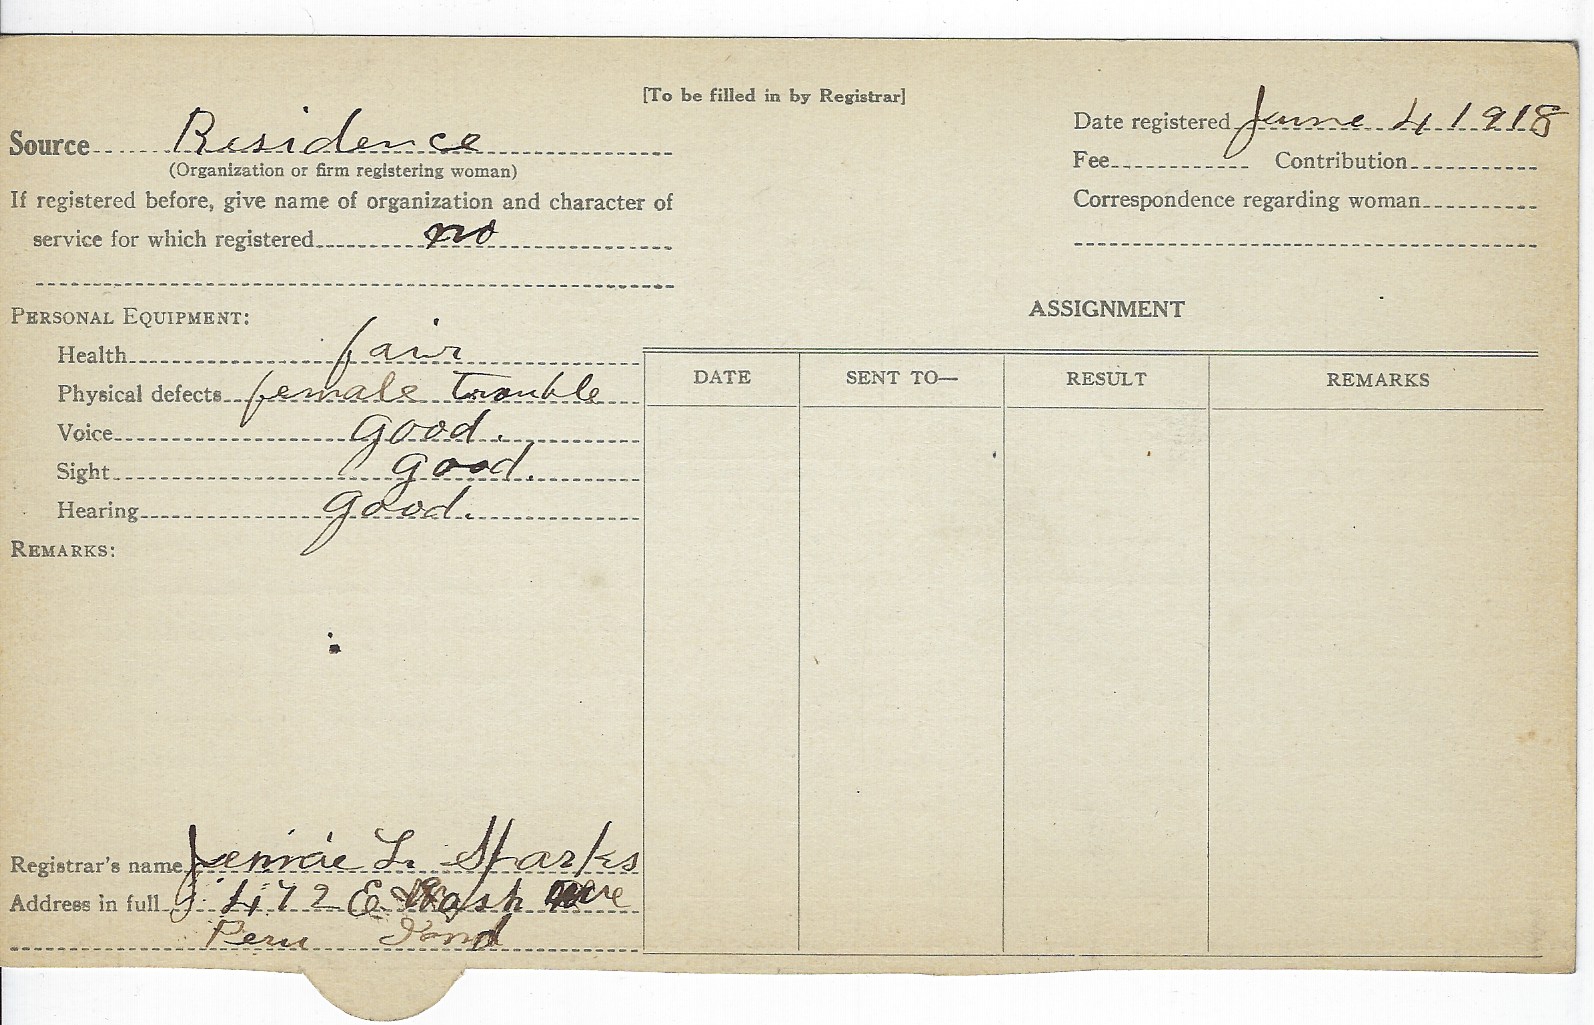 [To be filled in by Registrar]
Source Residence
(Organization or firm registering woman)
If registered before, give name of organization and character of
service for which registered no
Date registered June 4 1918
Fee Contribution
Correspondence regarding woman
PERSONAL EQUIPMENT:
Health fair
Physical defects female trouble
Voice good.
Sight good.
Hearing good.
REMARKS:
ASSIGNMENT
DATE SENT TO— RESULT REMARKS
Registrar's name Jennie L. Sparks
Address in full 472 E Wash Ave
Peru Ind